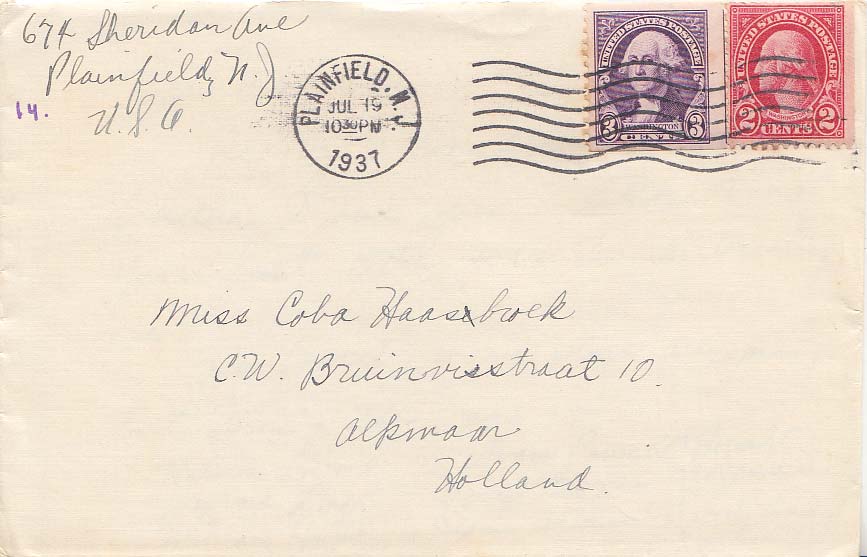 674 Sheridan Ave
Plainfield, N.J
14.
U.S.A.
PLAINFIELD, N.J.
JUL 19
10 30 PM
1937
UNITED STATES POSTAGE
3 WASHINGTON 3
CENTS
UNITED STATES POSTAGE
WASHINGTON
2 CENTS 2
Miss Coba Haasebroek
C.W. Bruinvisstraat 10.
Alkmaar
Holland.